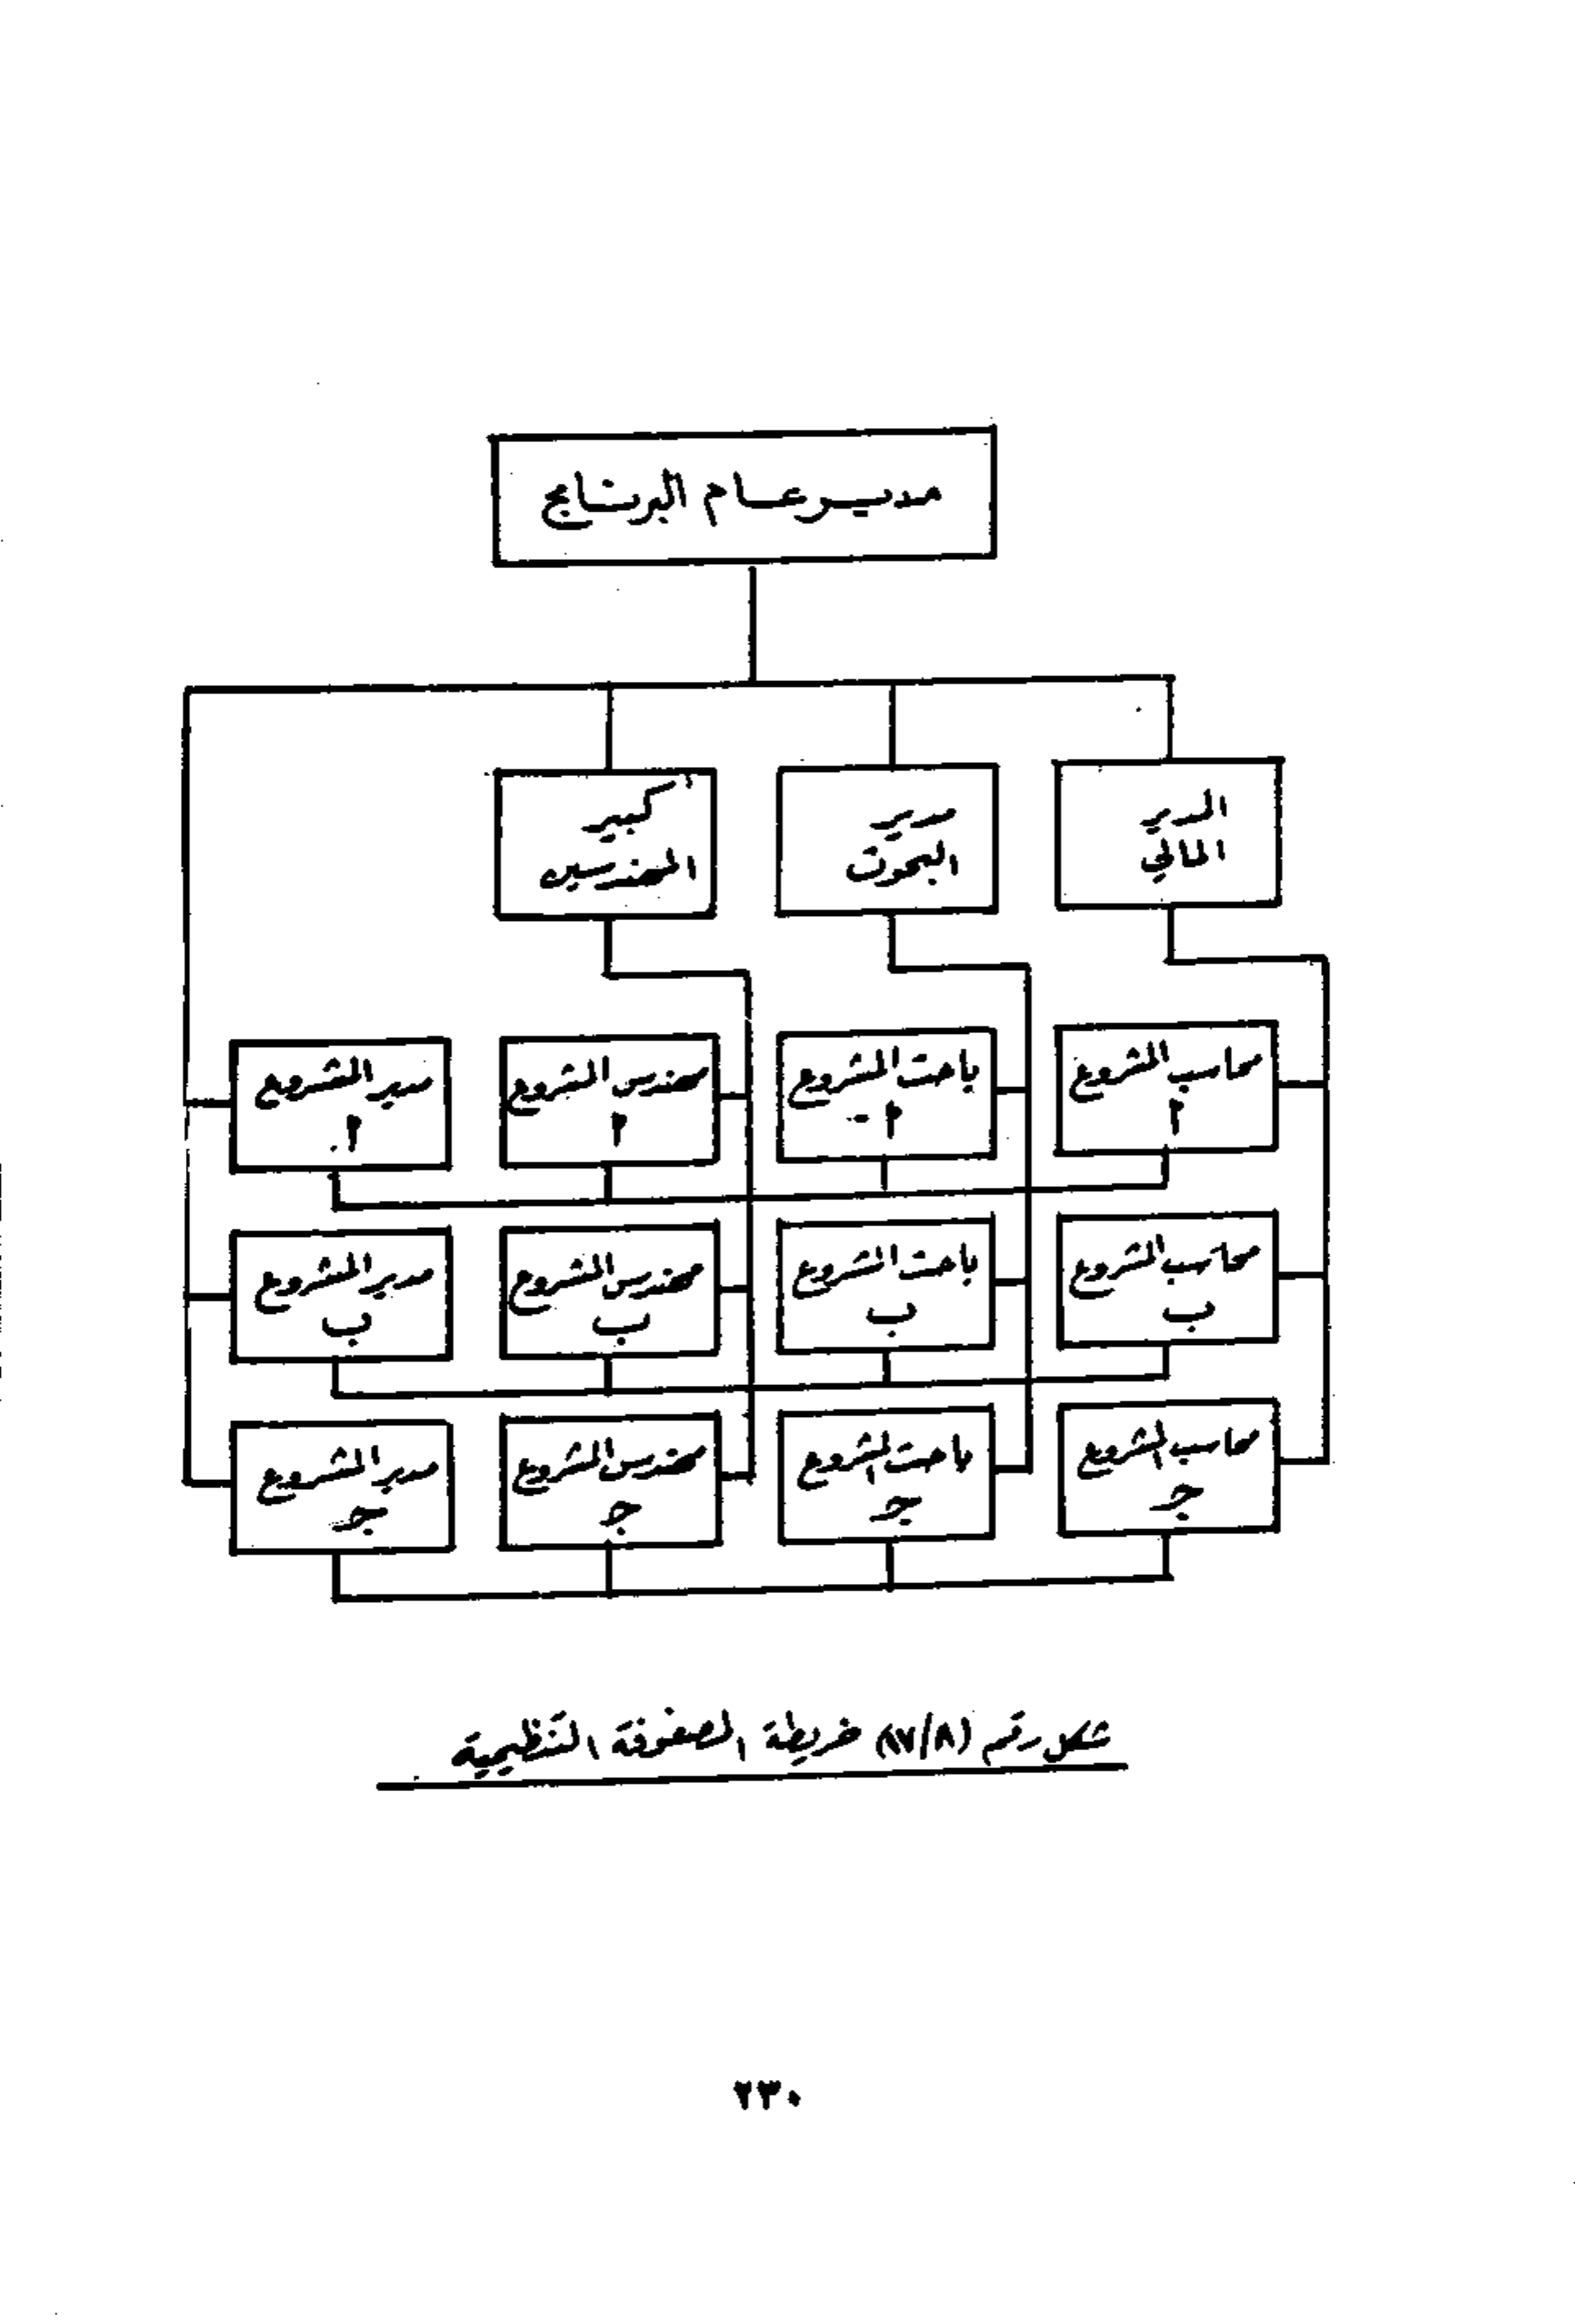 مدير عام البرنامج
المدير
المالي
مدير
البحوث
كبير
المهندسين
محاسب المشروع
أ
باحث المشروع
أ
مهندس المشروع
أ
مدير المشروع
أ
محاسب المشروع
ب
باحث المشروع
ب
مهندس المشروع
ب
مدير المشروع
ب
محاسب المشروع
جـ
باحث المشروع
جـ
مهندس المشروع
جـ
مدير المشروع
جـ
شكل رقم (١٧/٨) خريطة المصفوفة التنظيمية
٢٣٠